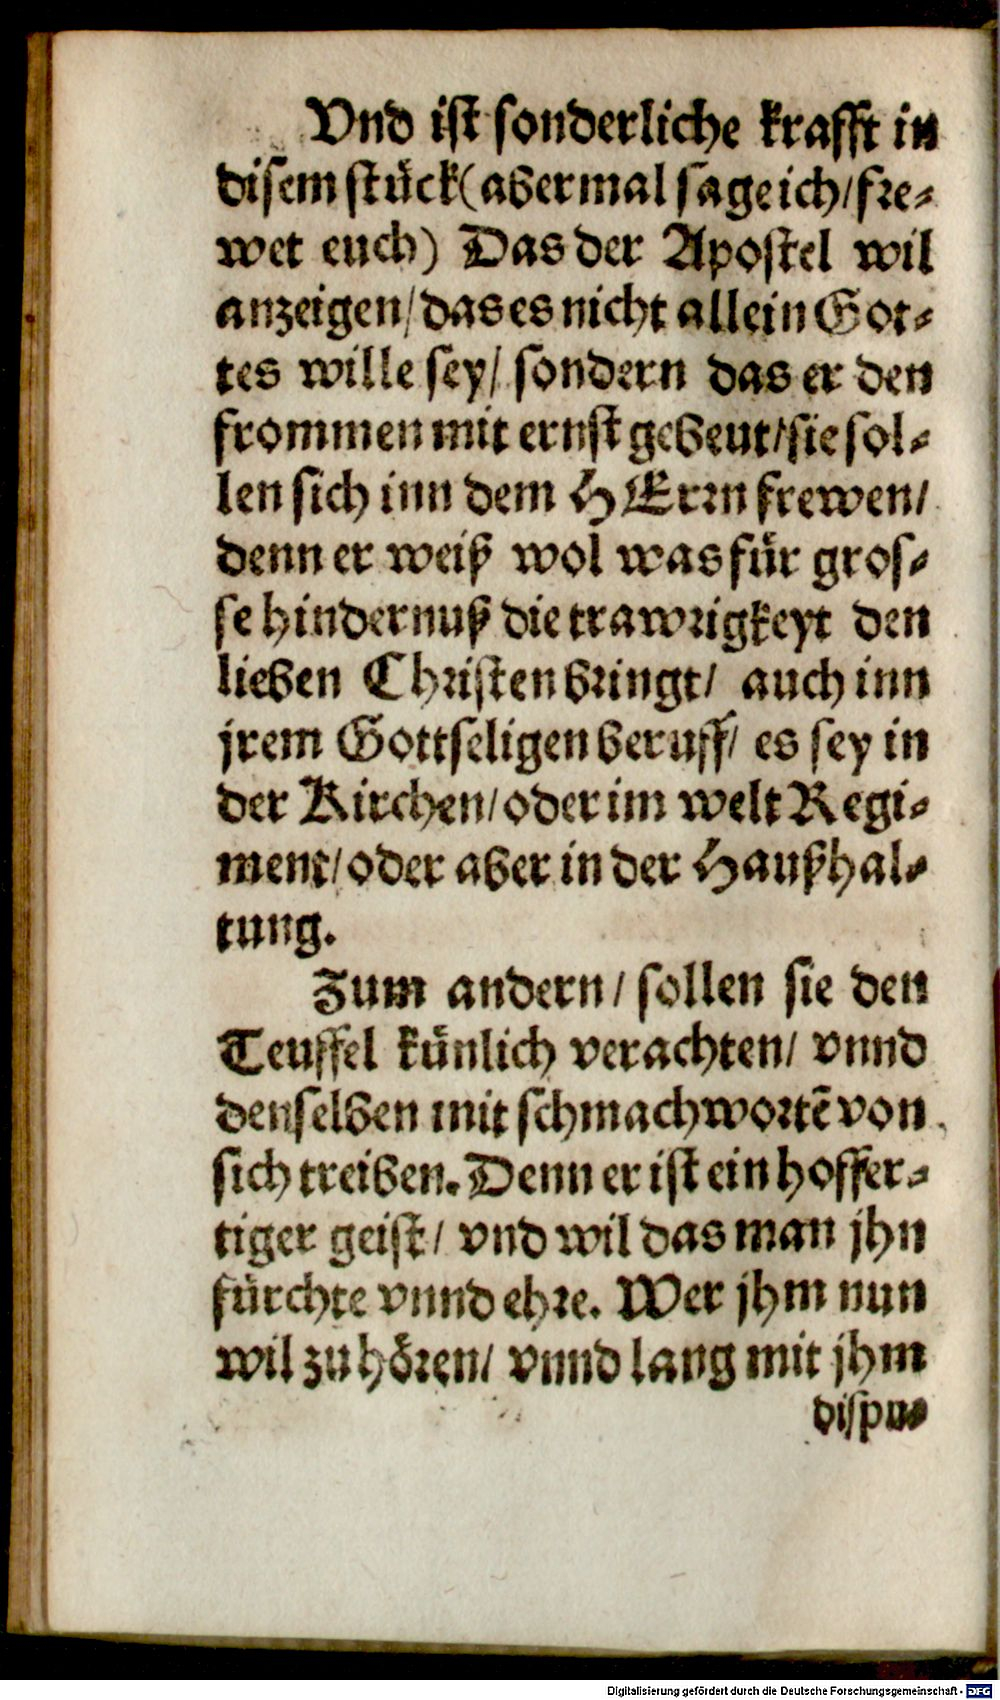 Vnd ist sonderliche krafft in
disem stück (abermal sage ich / fre-
wet euch) Das der Apostel wil
anzeigen / das es nicht allein Got-
tes wille sey / sondern das er den
frommen mit ernst gebeut / sie sol-
len sich inn dem HErrn frewen /
denn er weiß wol was für gros-
se hindernuß die trawrigkeyt den
lieben Christen bringt / auch inn
jrem Gottseligen beruff / es sey in
der Kirchen / oder im welt Regi-
ment / oder aber in der Haußhal-
tung.
Zum andern / sollen sie den
Teuffel künlich verachten / vnnd
denselben mit schmachwortẽ von
sich treiben. Denn er ist ein hoffer-
tiger geist / vnd wil das man jhn
fürchte vnnd ehre. Wer jhm nun
wil zu hören / vnnd lang mit jhm
dispu-
Digitalisierung gefördert durch die Deutsche Forschungsgemeinschaft - DFG